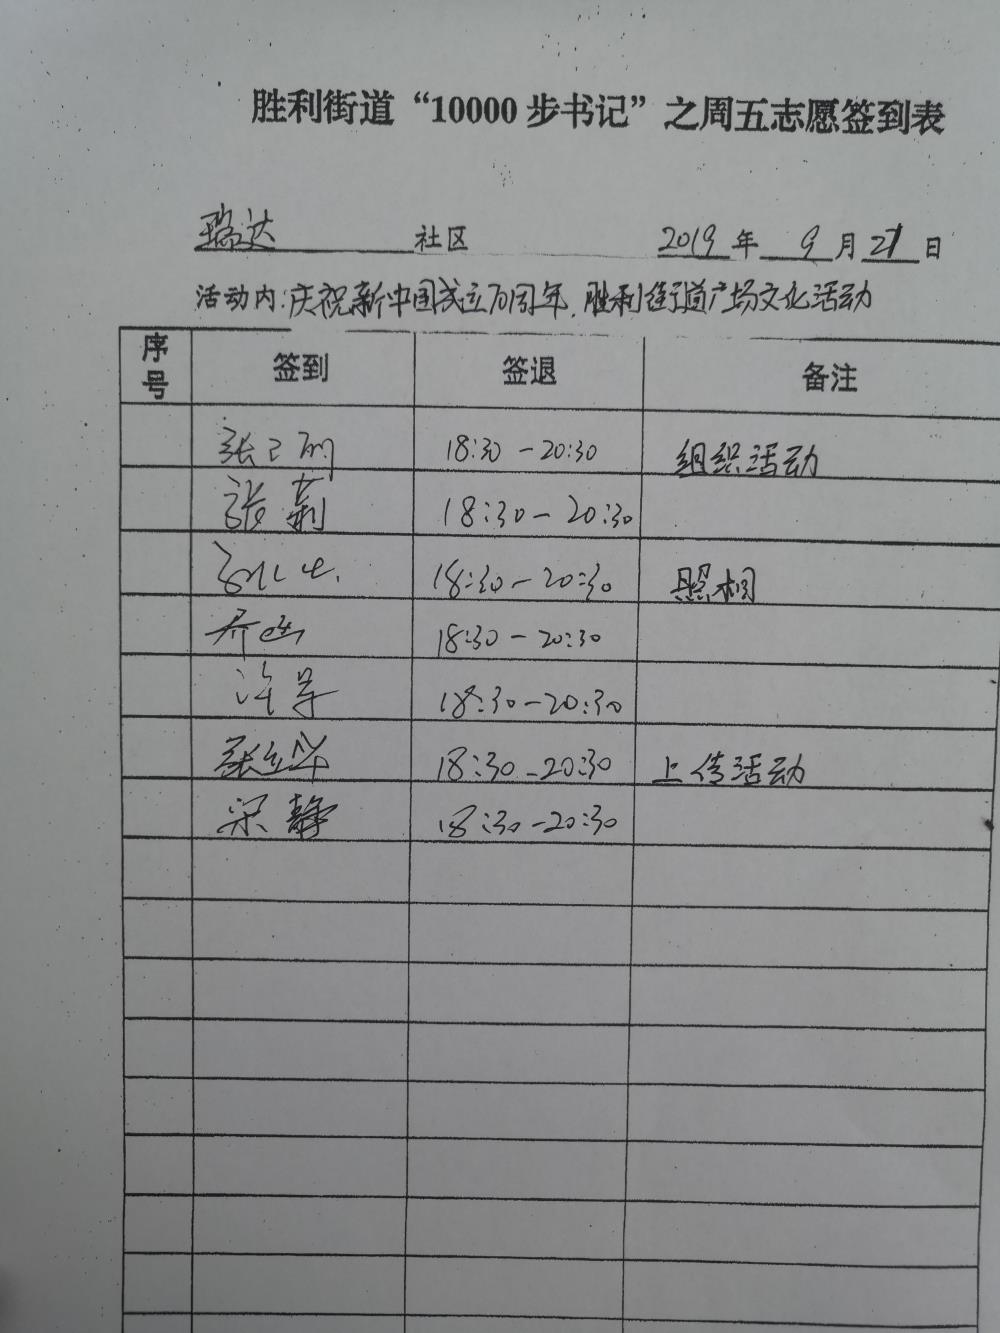 胜利街道“10000步书记”之周五志愿签到表
瑞达 社区 2019年 9月 21日
活动内:庆祝新中国成立70周年.胜利街道广场文化活动
序号 签到 签退 备注
18:30-20:30 组织活动
张莉 18:30-20:30
18:30-20:30 照相
乔 18:30-20:30
许 18:30-20:30
张立华 18:30-20:30 上传活动
梁静 18:30-20:30